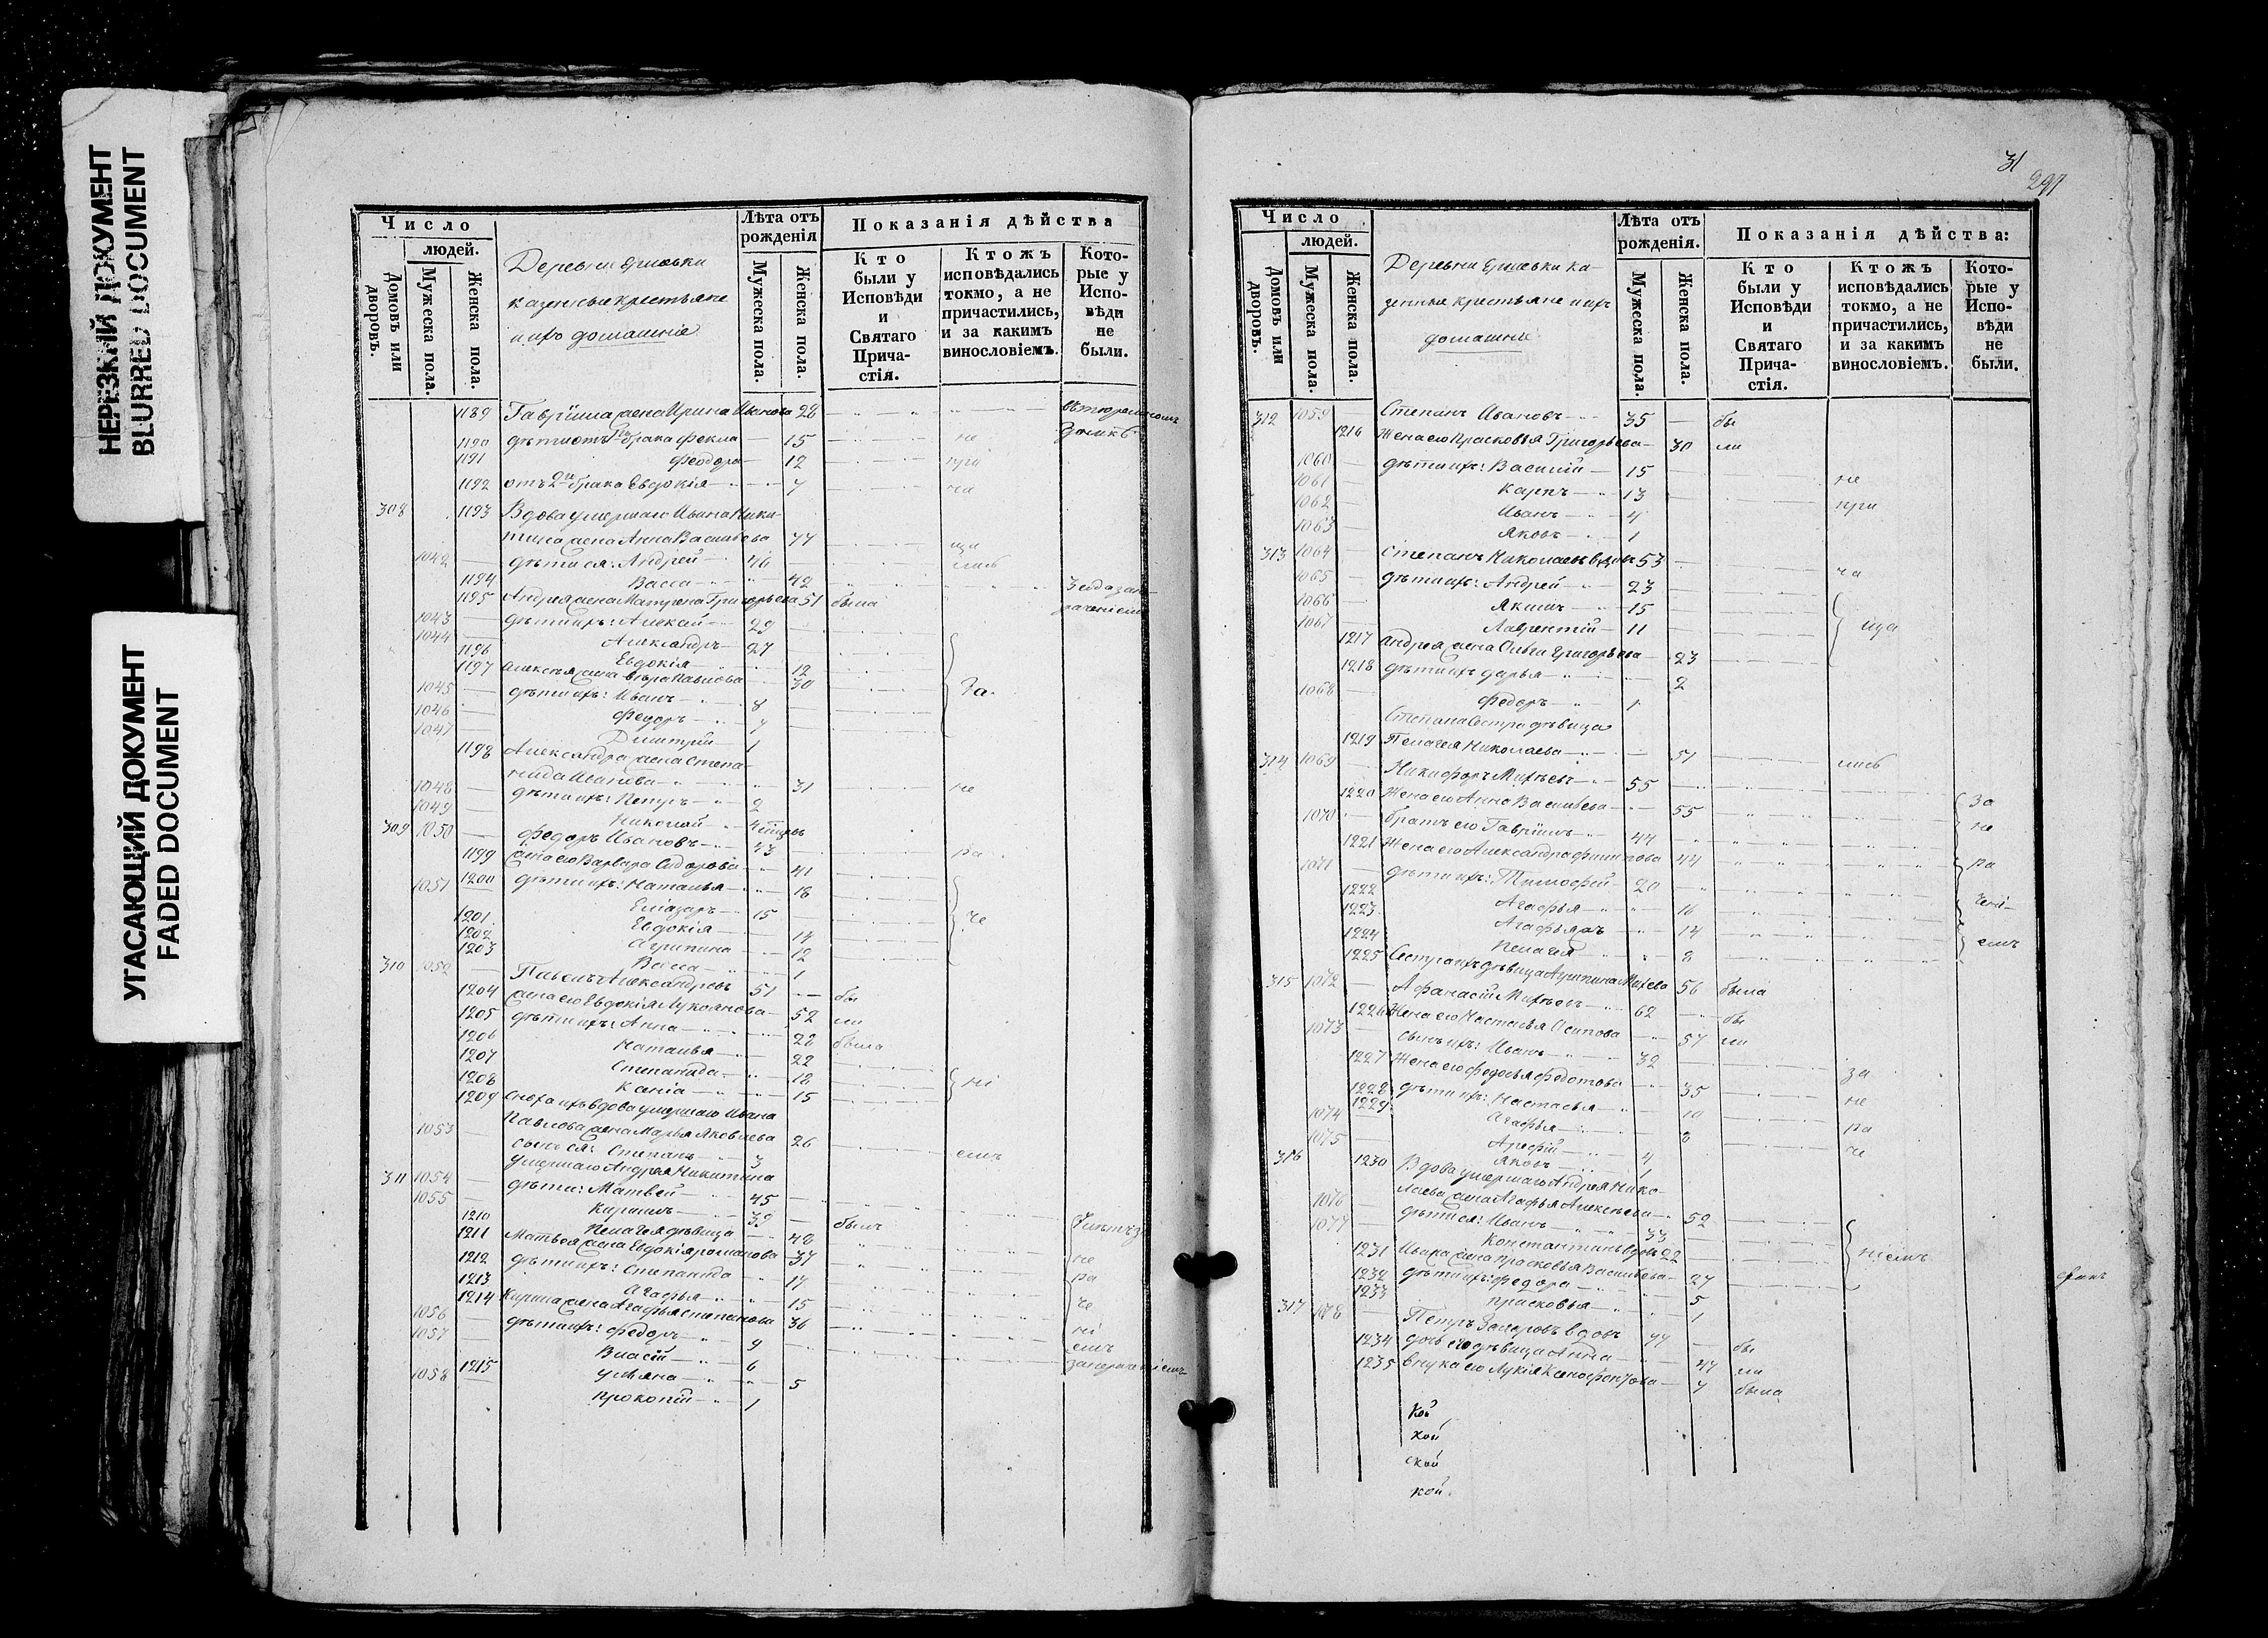 НЕРЕЗКИЙ ДОКУМЕНТ
BLURRED DOCUMENT
УГАСАЮЩИЙ ДОКУМЕНТ
FADED DOCUMENT
Число
людей.
Домовъ или дворовъ.
Мужеска пола.
Женска пола.
казенные крестьяне
и ихъ домашніе
Лѣта отъ рожденія
Мужеска пола.
Женска пола.
Показанія дѣйства
Кто были у Исповѣди и Святаго Причастія.
Ктожъ исповѣдались токмо, а не причастились, и за какимъ винословіемъ.
Которые у Исповѣди не были.
1189 Гавріила жена Ирина Иванова 28
1190 дѣти отъ 1го брака Фекла 15 не
1191 Феодора 12 при
1192 отъ 2го брака Евдокія 7 ча
308 1193 Вдова умершаго Ивана Ники-
тина жена Анна Васильева 77
1042 дѣти ея: Андрей 46
1194 Васса 42
1195 Андрея жена Матрена Григорьева 51 была
1043 дѣти ихъ: Алексѣй 29
1044 Александръ 27
1196 Евдокія 12
1197 Алексѣя жена Вѣра Павлова 30 за
1045 дѣти ихъ: Иванъ 8
1046 Федоръ
1047 Дмитрій 1
1198 Александра жена Степа-
нида Иванова 31 не
1048 дѣти ихъ: Петръ 2
1049 Николай
309 1050 Федоръ Ивановъ 43 ра
1199 жена его Варвара Сидорова 41
1200 дѣти ихъ: Наталья 18
1051 Елiазаръ 15
1201 Евдокія 14 че
1202 Агрипина 12
1203 Васса 1
310 1052 Павелъ Александровъ 51 бы
1204 жена его Евдокія Лукоянова 52 ли
1205 дѣти ихъ: Анна 28 была
1206 Наталья 22
1207 Степанида 18 ні
1208 15
1209 сноха ихъ вдова умершаго Ивана
Павлова жена Марья Яковлева 26
1053 сынъ ея: Степанъ 3 емъ
311 умершаго Андрея Никитина
1054 дѣти: Матвей 45
1055 Кирилъ 39 былъ
1210 Пелагея дѣвица 48
1211 Матвея жена Евдокія Романова 37 не
1212 дѣти ихъ: Степанида 17 ра
1213 Агафья 15 че
1214 Кирила жена Агафья Степанова 36 ні
1056 дѣти ихъ: Федоръ 9 емъ
1057 Власій 6
1215 Ульяна 5
1058 Прокопій 1
31
297
Число
людей.
Домовъ или дворовъ.
Мужеска пола.
Женска пола.
домашніе
Лѣта отъ рожденія.
Мужеска пола.
Женска пола.
Показанія дѣйства:
Кто были у Исповѣди и Святаго Причастія.
Ктожъ исповѣдались токмо, а не причастились, и за какимъ винословіемъ.
Которые у Исповѣди не были.
312 1059 Степанъ Ивановъ 35 бы
1216 Жена его Прасковья Григорьева 30 ли
1060 дѣти ихъ: Василій 15 не
1061 Карпъ 13
1062 Иванъ 4 при
1063 Яковъ 1
313 1064 Степанъ Николаевъ вдовъ 53 ча
1065 дѣти ихъ: Андрей 23
1066 Якимъ 15
1067 Лаврентій 11 ща
1217 Андрея жена Ольга Григорьева 23
1218 дѣти ихъ Дарья 2
1068 Федоръ 1
Степана сестра дѣвица
1219 Пелагея Николаева 51 лись
314 1069 Никифоръ Михѣевъ 55
1220 Жена его Анна Васильева 55 за
1070 братъ его Гавріилъ 44 не
1221 Жена его Александра Филипова 44 ра
1071 дѣти ихъ: Тимофей 20
1222 Агафья 16 чені-
1223 14
1224 Пелагея 8 емъ
1225 Сестра ихъ дѣвица Агрипина Михеева 56 была
315 1072 Афанасій Михѣевъ 62 бы
1226 Жена его Настасья Осипова 57 ли
1073 сынъ ихъ: Иванъ 32
1227 Жена его Федосья Федотова 35 за
1228 дѣти ихъ: Настасья 10 не
1229 Агафья 8 ра
1074 Арефій 4 че
1075 Яковъ 1
316 1230 Вдова умершаго Андрея Нико-
лаева жена Агафья Алексѣева 52
1076 дѣти ея: Иванъ 33
1077 Константинъ вдовъ 22 ніемъ
1231 Ивана жена Прасковья Васильева 27
1232 дѣти ихъ: Федора 5
1233 Прасковья 1
317 1078 Петръ Захаровъ вдовъ 77 бы
1234 дочь его дѣвица Анна 47 ли
1235 внука его Лукія Ксенофонтова 7 была
кой
кой
ской
кой